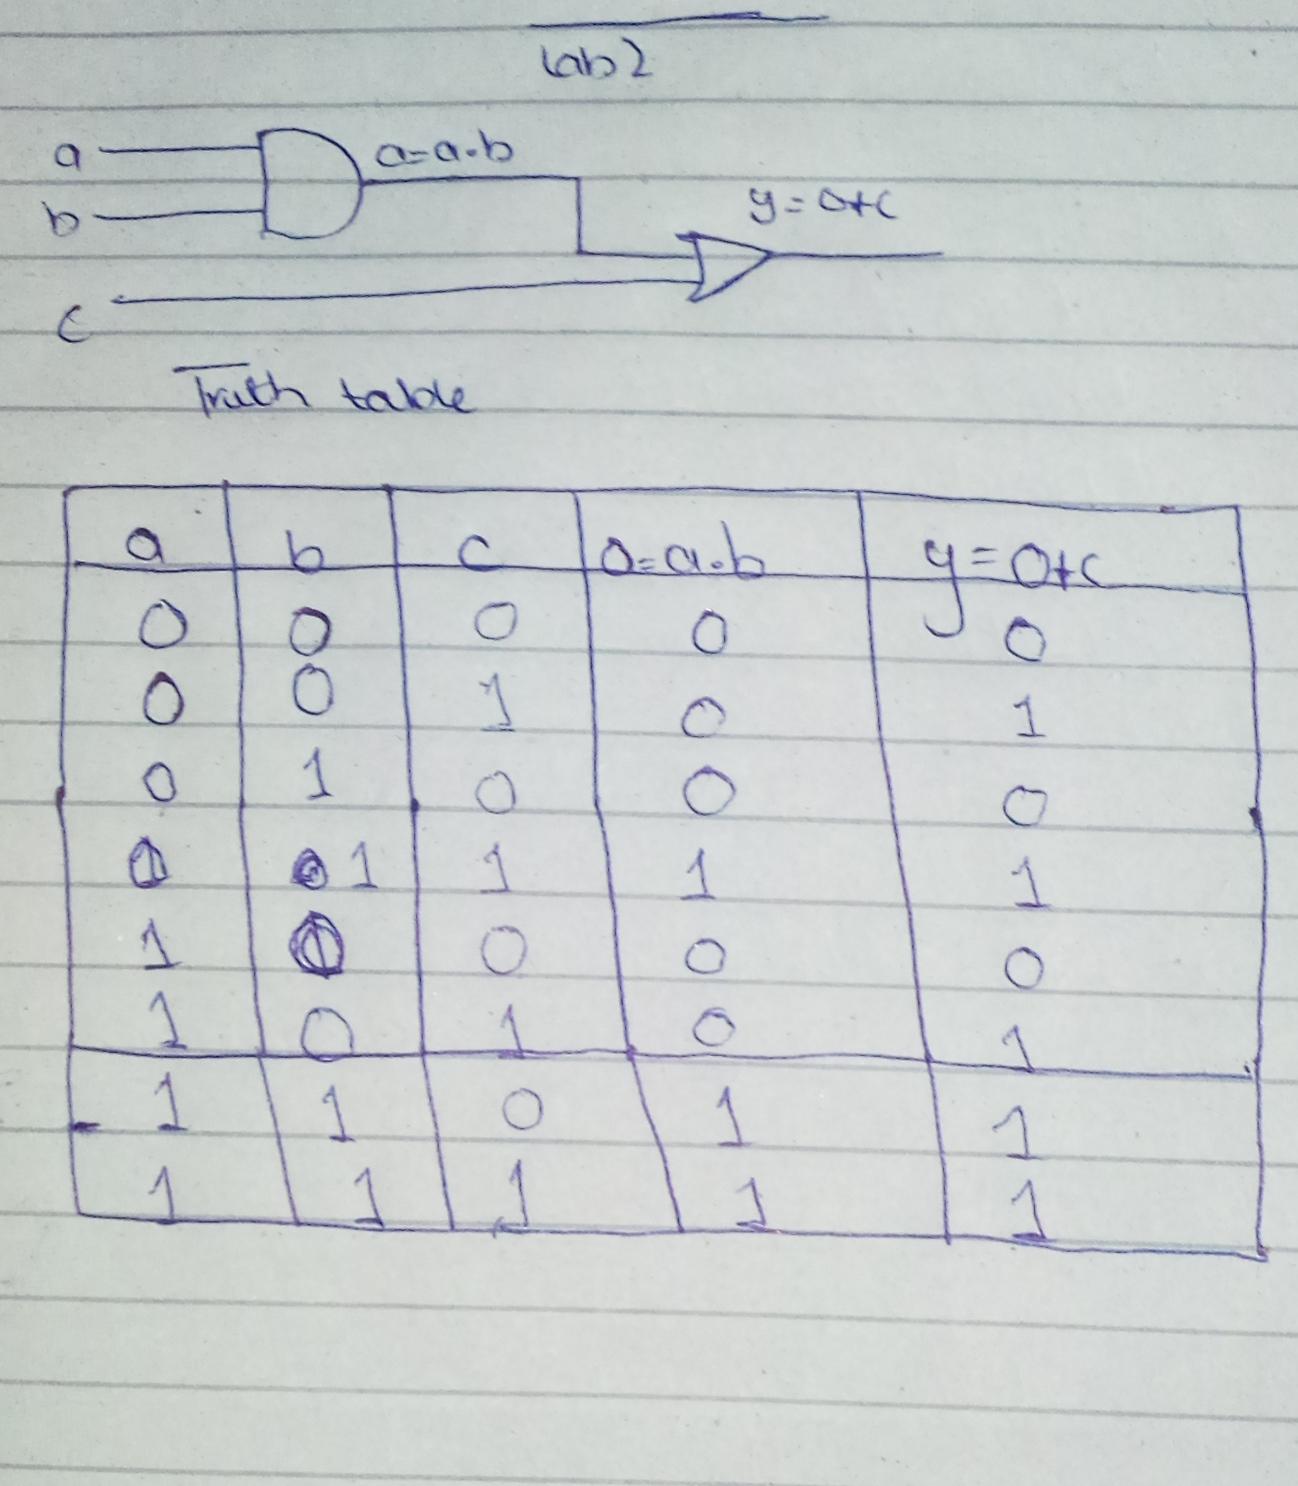 Lab 2
a
a=a.b
b
y=o+c
c
Truth table
a b c o=a.b y=o+c
0 0 0 0 0
0 0 1 0 1
0 1 0 0 0
0 1 1 1 1
1 0 0 0
1 0 1 0 1
1 1 0 1 1
1 1 1 1 1